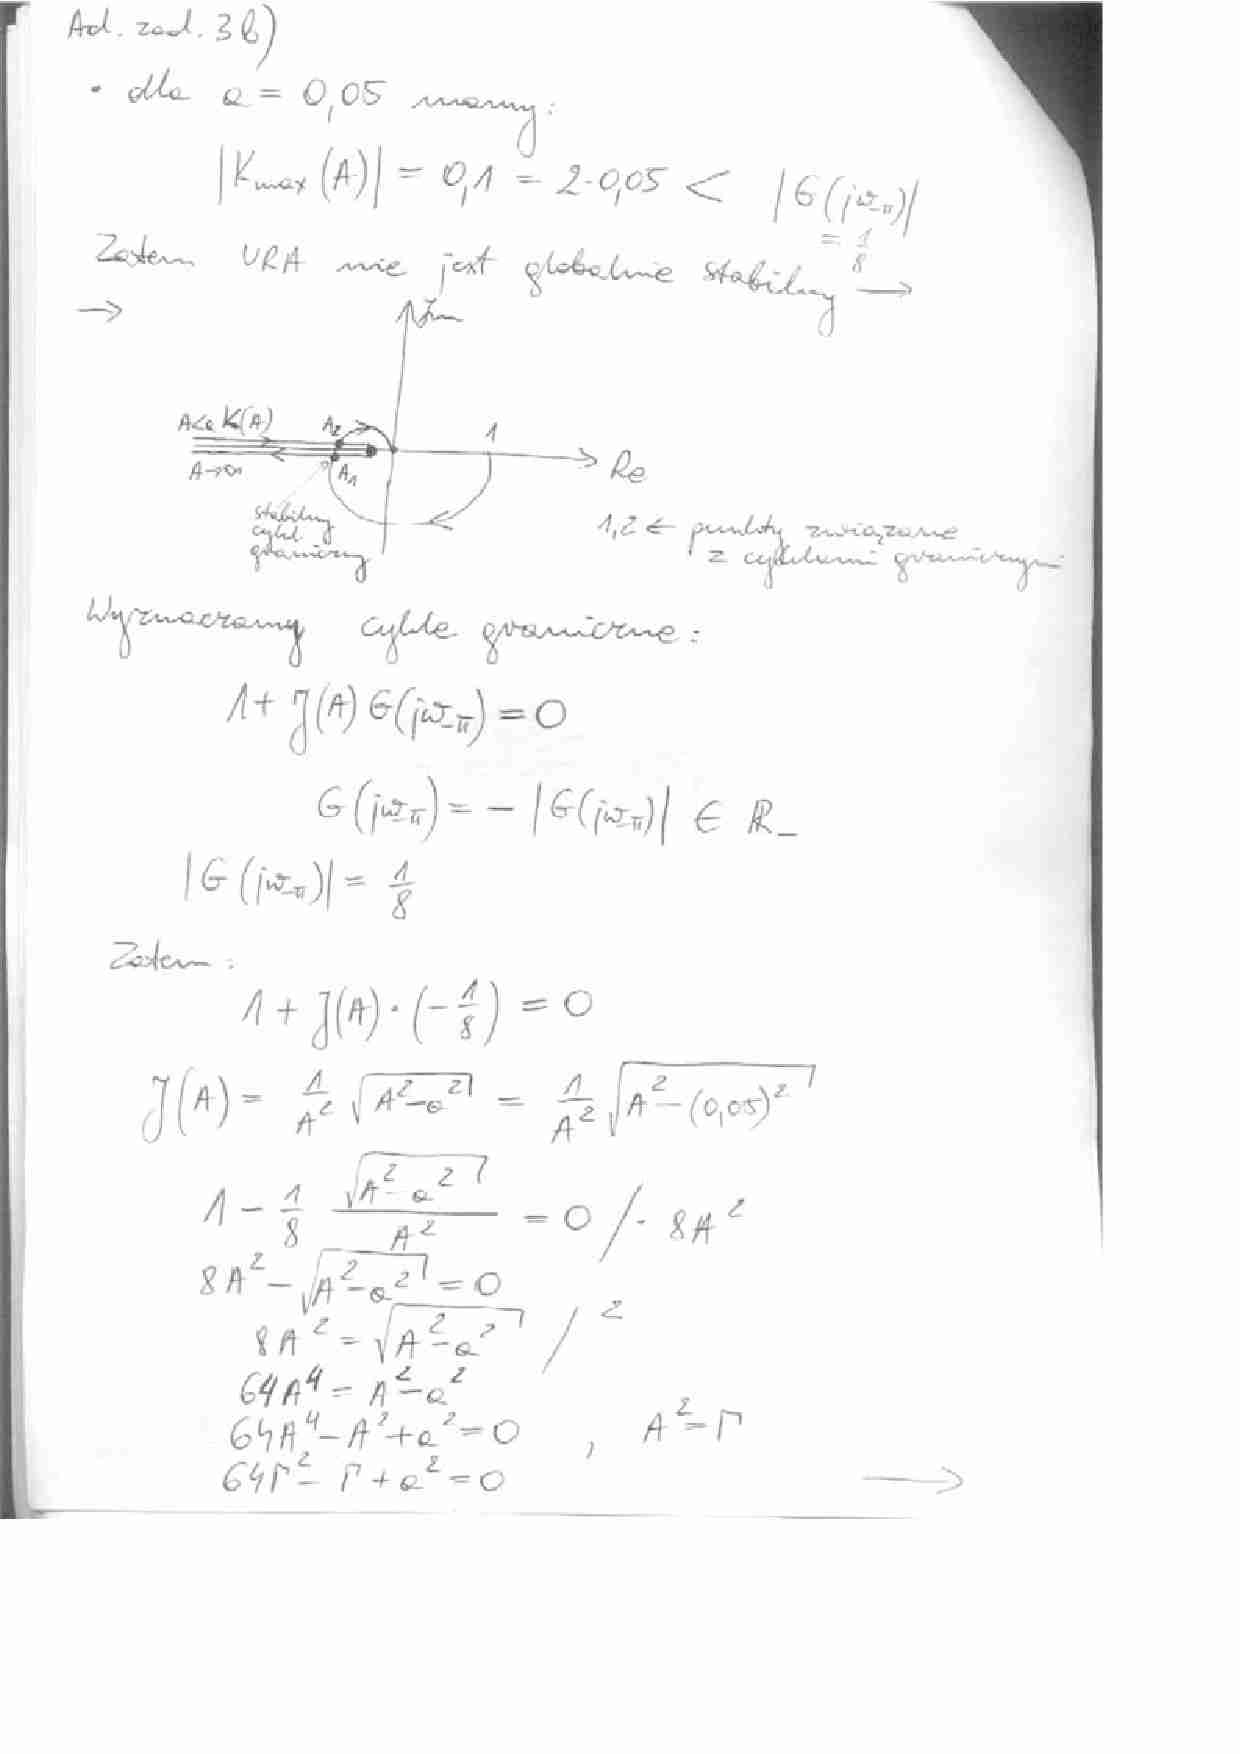 Ad. zad. 3b)
• dla a = 0,05 mamy:
|Kmax (A)| = 0,1 = 2·0,05 < |G(jω-π)|
= 1/8
Zatem URA nie jest globalnie stabilny →
→
Im
A<a K(A) A2 1
A→∞ A1 Re
stabilny
cykl
graniczny
1,2 ← punkty związane
z cyklami granicznymi
Wyznaczamy cykle graniczne:
1 + J(A) G(jω-π) = 0
G(jω-π) = - |G(jω-π)| ∈ ℝ_
|G(jω-π)| = 1/8
Zatem:
1 + J(A) · (- 1/8) = 0
J(A) = 1/A² √(A²-a²) = 1/A² √(A² - (0,05)²)
1 - 1/8 √(A²-a²)/A² = 0 /· 8A²
8A² - √(A²-a²) = 0
8A² = √(A²-a²) /²
64A⁴ = A²-a²
64A⁴ - A² + a² = 0 , A² = Γ
64Γ² - Γ + a² = 0 →